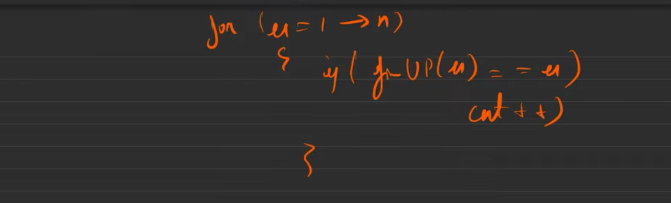 for (u = 1 → n)
{ if ( findUP(u) == u )
cnt++)
}